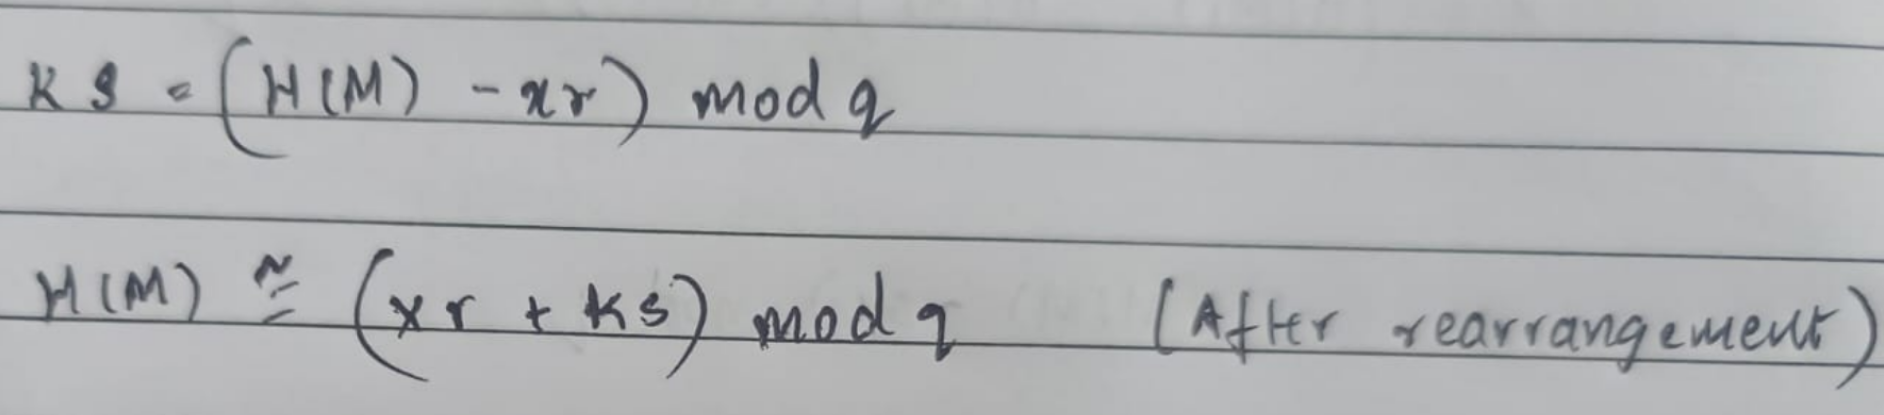 KS = (H(M) - xr) mod q
H(M) ≅ (xr + KS) mod q (After rearrangement)